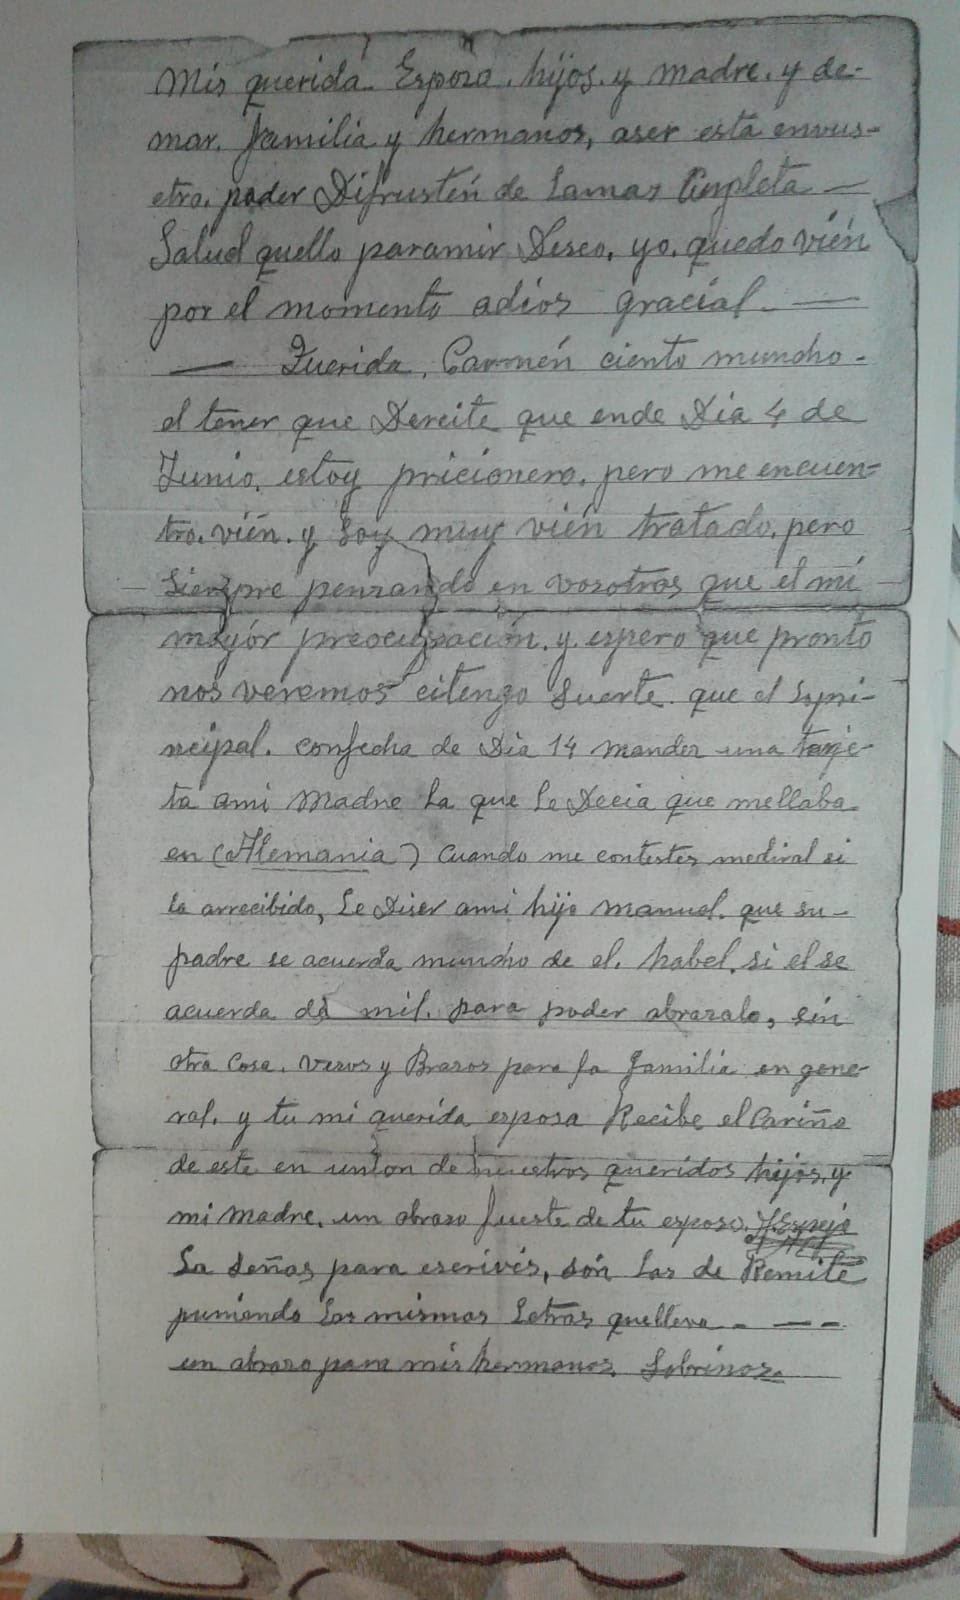 Mis querida Espoza. hijos. y madre. y de-
mas. familia y hermanos, aser esta envus-
etro. poder Difrustén de Lamas Cinpleta —
Salud quello paramir Deseo, yo. quedo vién
por el momento adios gracial. —
— Querida. Carmén ciento muncho -
el tener que Dercite que ende Dia 4 de
Junio. estoy pricionero. pero me encuen-
tro. vién. y soy muy vién tratado. pero
— Sienpre penzando en vosotros que el mi —
mayór preocupación. y. espero que pronto
nos veremos citengo suerte. que el Lopri-
ncipal. confecha de Dia 14 mander una tarje-
ta ami Madre La que Le Decia que mellaba
en (Alemania) Cuando me contestes mediral si
la arrecibido, Le Diser ami hijo manuel. que su -
padre se acuerda muncho de el. habel. si el se
acuerda de mil. para poder abrazalo, sin
otra Cosa. Vezos y Brazos para la familia en gene-
ral. y tu mi querida esposa Recibe el Cariño
de este en union de nuestros queridos hijos. y
mi madre. un abrazo fuerte de tu esposo. J. Espejo
La Señas para escrivis, són Las de Remite
puniendo Las mismas Letras quelleva - - - -
un abrazo para mis hermanos. Sobrinos.